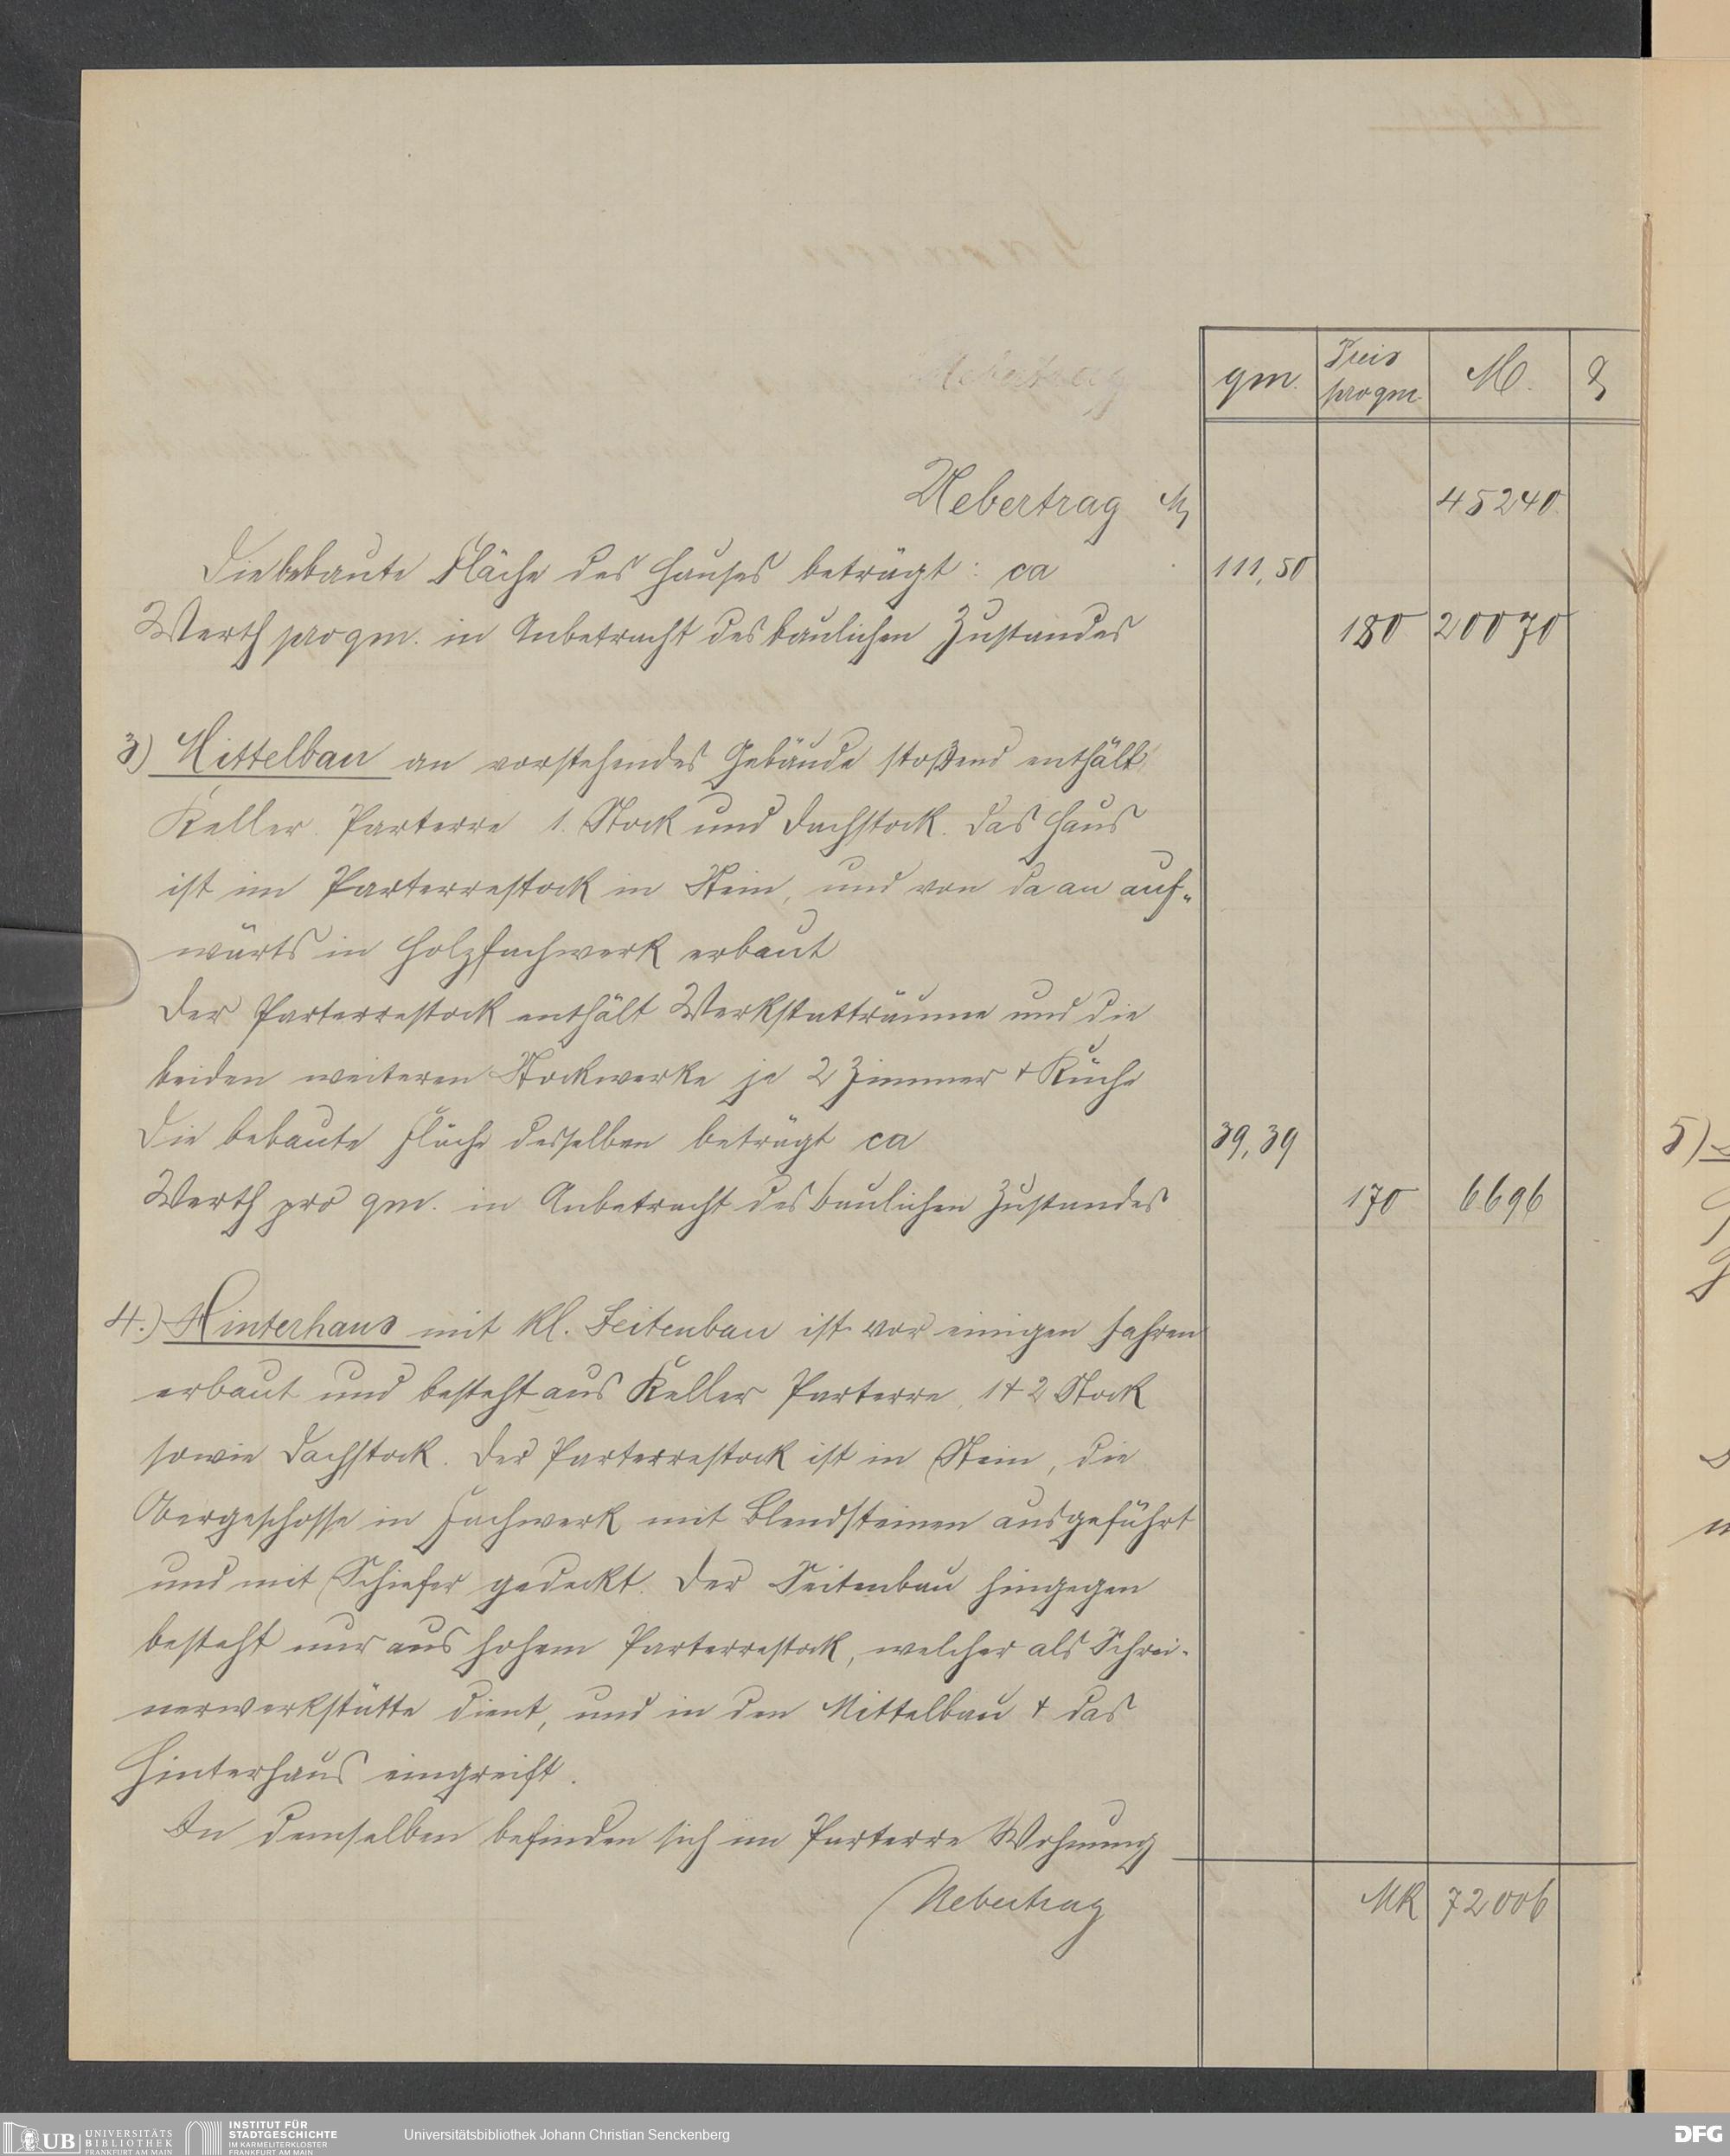 qm. Preis pro qm. M. ₰
Uebertrag M 45240.
Die bebaute Fläche des Hauses beträgt: ca 111,50
Werth pro qm. in Anbetracht des baulichen Zustandes 180 20070
3) Mittelbau an vorstehendes Gebäude stoßend enthält
Keller Parterre 1. Stock und Dachstock. Das Haus
ist im Parterrestock in Stein, und von da an auf-
wärts in Holzfachwerk erbaut
Der Parterrestock enthält Werkstatträume und die
beiden weiteren Stockwerke je 2 Zimmer + Küche
Die bebaute Fläche desselben beträgt ca 39,39
Werth pro qm. in Anbetracht des baulichen Zustandes 170 6696
4.) Hinterhaus mit kl. Seitenbau ist vor einigen Jahren
erbaut und besteht aus Keller Parterre, 1 + 2 Stock
sowie Dachstock. Der Parterrestock ist in Stein, die
Obergeschosse in Fachwerk mit Blendsteinen ausgeführt
und mit Schiefer gedeckt. Der Seitenbau hingegen
besteht nur aus hohem Parterrestock, welcher als Schrei-
nerwerkstätte dient, und in den Mittelbau + das
Hinterhaus eingreift.
In demselben befinden sich im Parterre Wohnung
Uebertrag MK 72006
5)
UB UNIVERSITÄTS BIBLIOTHEK FRANKFURT AM MAIN
INSTITUT FÜR STADTGESCHICHTE IM KARMELITERKLOSTER FRANKFURT AM MAIN
Universitätsbibliothek Johann Christian Senckenberg
DFG